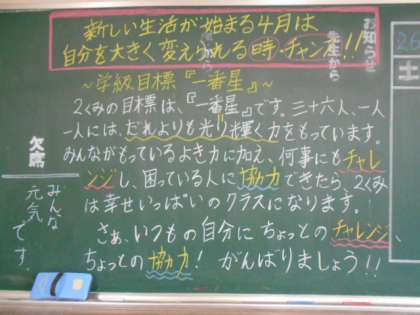 新しい生活が始まる4月は
自分を大きく変えられる時・チャンス!!
~学級目標『一番星』~
2くみの目標は、『一番星』です。三十六人、一人
一人には、だれよりも光り輝く力をもっています。
みんながもっているよき力に加え、何事にもチャレ
ンジし、困っている人に協力できたら、2くみ
は幸せいっぱいのクラスになります。
さぁ、いつもの自分にちょっとのチャレンジ、
ちょっとの協力! がんばりましょう!!
お知らせ
先生から
欠席
みんな
元気
です。
26
土